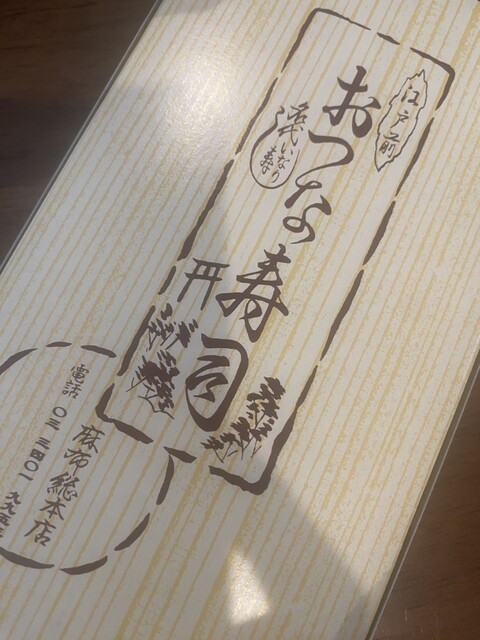 江戸前
おつな寿司
いなり
麻布総本店
電話 〇三 三四〇一 九九五